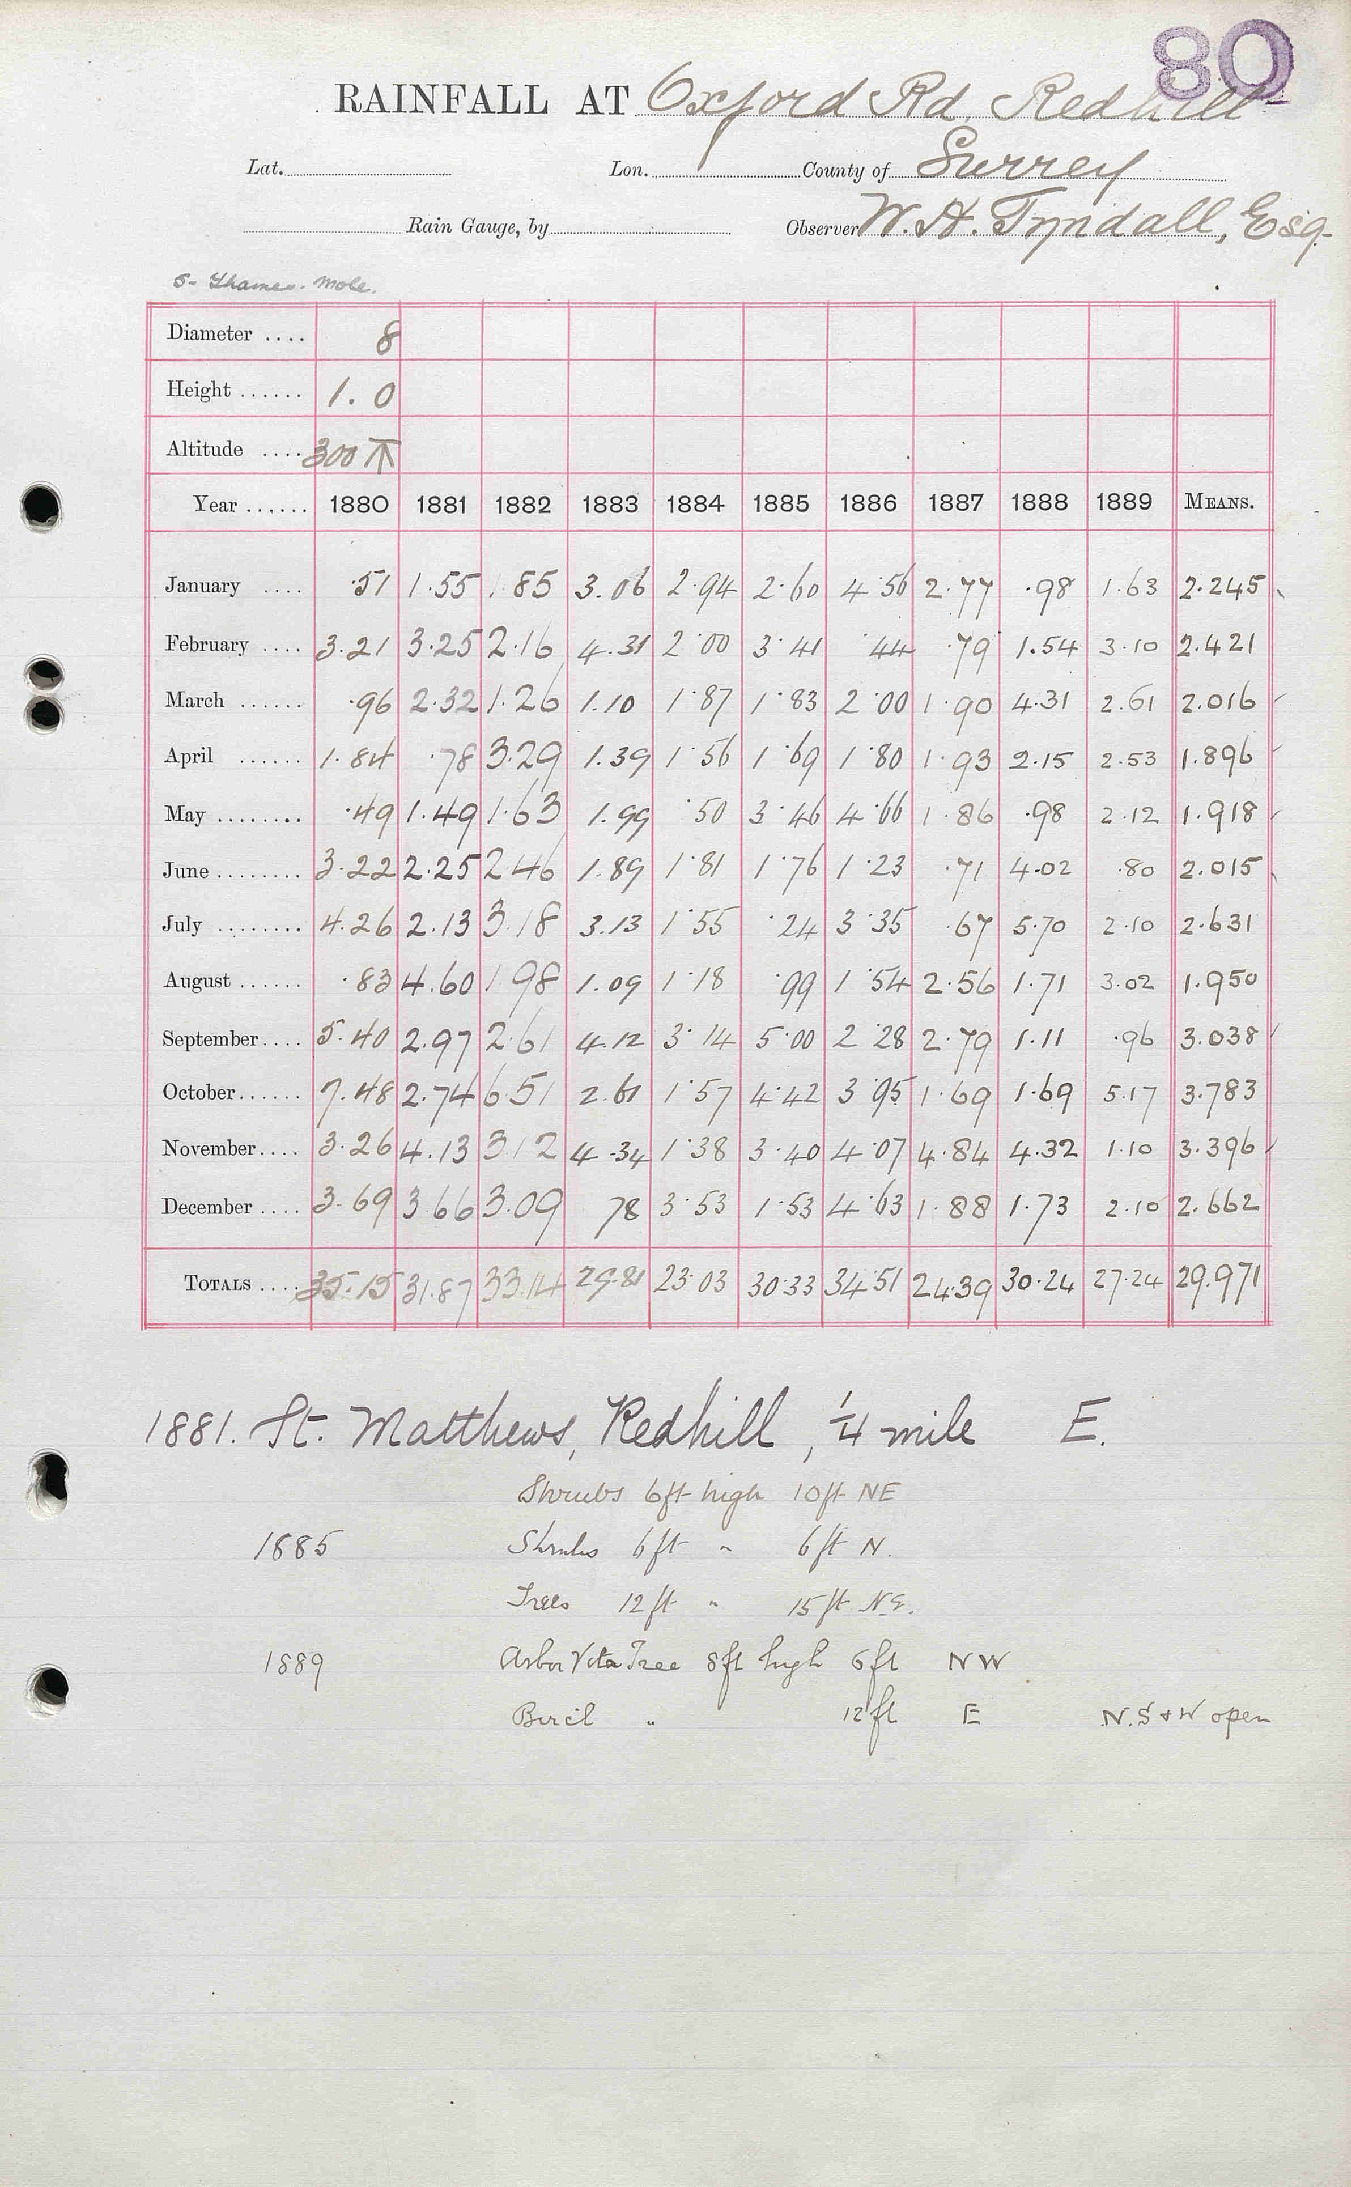 80
RAINFALL AT Oxford Rd, Redhill
Lat. Lon. County of Surrey
Rain Gauge, by Observer W. H. Tyndall, Esq.
5- Thames. Mole.
Diameter .... 8
Height ...... 1.0
Altitude .... 300 T
Year ...... 1880 1881 1882 1883 1884 1885 1886 1887 1888 1889 MEANS.
January .... .51 1.55 1.85 3.06 2.94 2.60 4.56 2.77 .98 1.63 2.245
February .... 3.21 3.25 2.16 4.31 2.00 3.41 .44 .79 1.54 3.10 2.421
March ...... .96 2.32 1.26 1.10 1.87 1.83 2.00 1.90 4.31 2.61 2.016
April ...... 1.84 .78 3.29 1.39 1.56 1.69 1.80 1.93 2.15 2.53 1.896
May ........ .49 1.49 1.63 1.99 .50 3.46 4.66 1.86 .98 2.12 1.918
June ........ 3.22 2.25 2.46 1.89 1.81 1.76 1.23 .71 4.02 .80 2.015
July ........ 4.26 2.13 3.18 3.13 1.55 .24 3.35 .67 5.70 2.10 2.631
August ...... .83 4.60 1.98 1.09 1.18 .99 1.54 2.56 1.71 3.02 1.950
September .... 5.40 2.97 2.61 4.12 3.14 5.00 2.28 2.79 1.11 .96 3.038
October ...... 7.48 2.74 6.51 2.61 1.57 4.42 3.95 1.69 1.69 5.17 3.783
November .... 3.26 4.13 3.12 4.34 1.38 3.40 4.07 4.84 4.32 1.10 3.396
December .... 3.69 3.66 3.09 .78 3.53 1.53 4.63 1.88 1.73 2.10 2.662
TOTALS .... 35.15 31.87 33.14 29.81 23.03 30.33 34.51 24.39 30.24 27.24 29.971
1881. St. Matthews, Redhill, 1/4 mile E.
Shrubs 6ft high 10ft NE
1885 Shrubs 6ft " 6ft N.
Trees 12ft " 15ft N.E.
1889 Arbor Vita Tree 8ft high 6ft NW
Birch " 12ft E N.S & W open